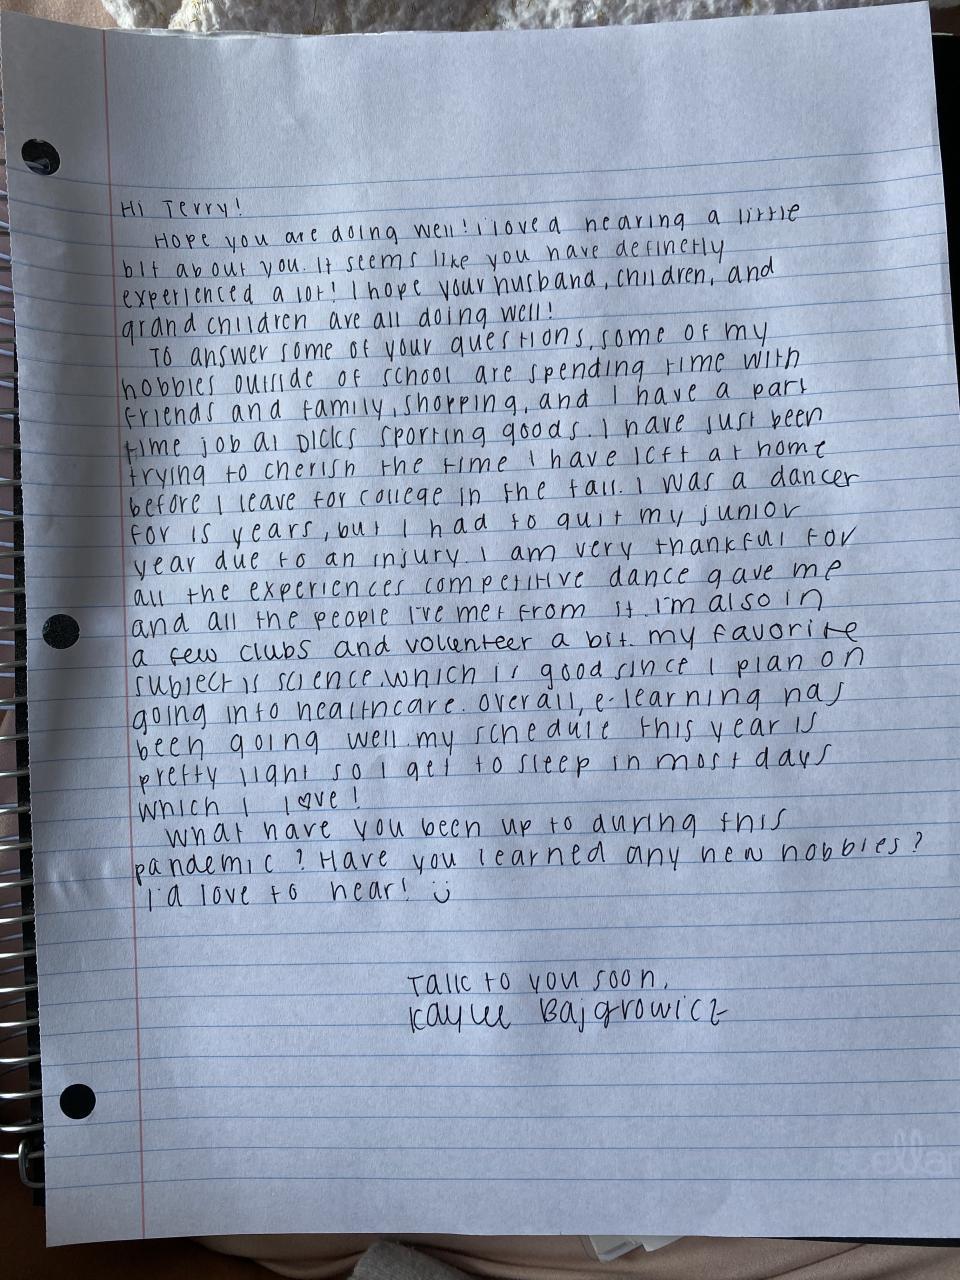 Hi Terry!
Hope you are doing well! i loved hearing a little
bit about you. It seems like you have definetly
experienced a lot! I hope your husband, children, and
grandchildren are all doing well!
To answer some of your questions, some of my
hobbies outside of school are spending time with
friends and family, shopping, and I have a part
time job at Dicks sporting goods. I have just been
trying to cherish the time I have left at home
before I leave for college in the fall. I was a dancer
for 15 years, but I had to quit my junior
year due to an injury. I am very thankful for
all the experiences competitive dance gave me
and all the people I've met from it. I'm also in
a few clubs and volunteer a bit. my favorite
subject is science, which is good since I plan on
going into healthcare. overall, e-learning has
been going well. my schedule this year is
pretty light so I get to sleep in most days
which I love!
What have you been up to during this
pandemic? Have you learned any new hobbies?
I'd love to hear! :)
Talk to you soon,
Kaylee Bajgrowicz